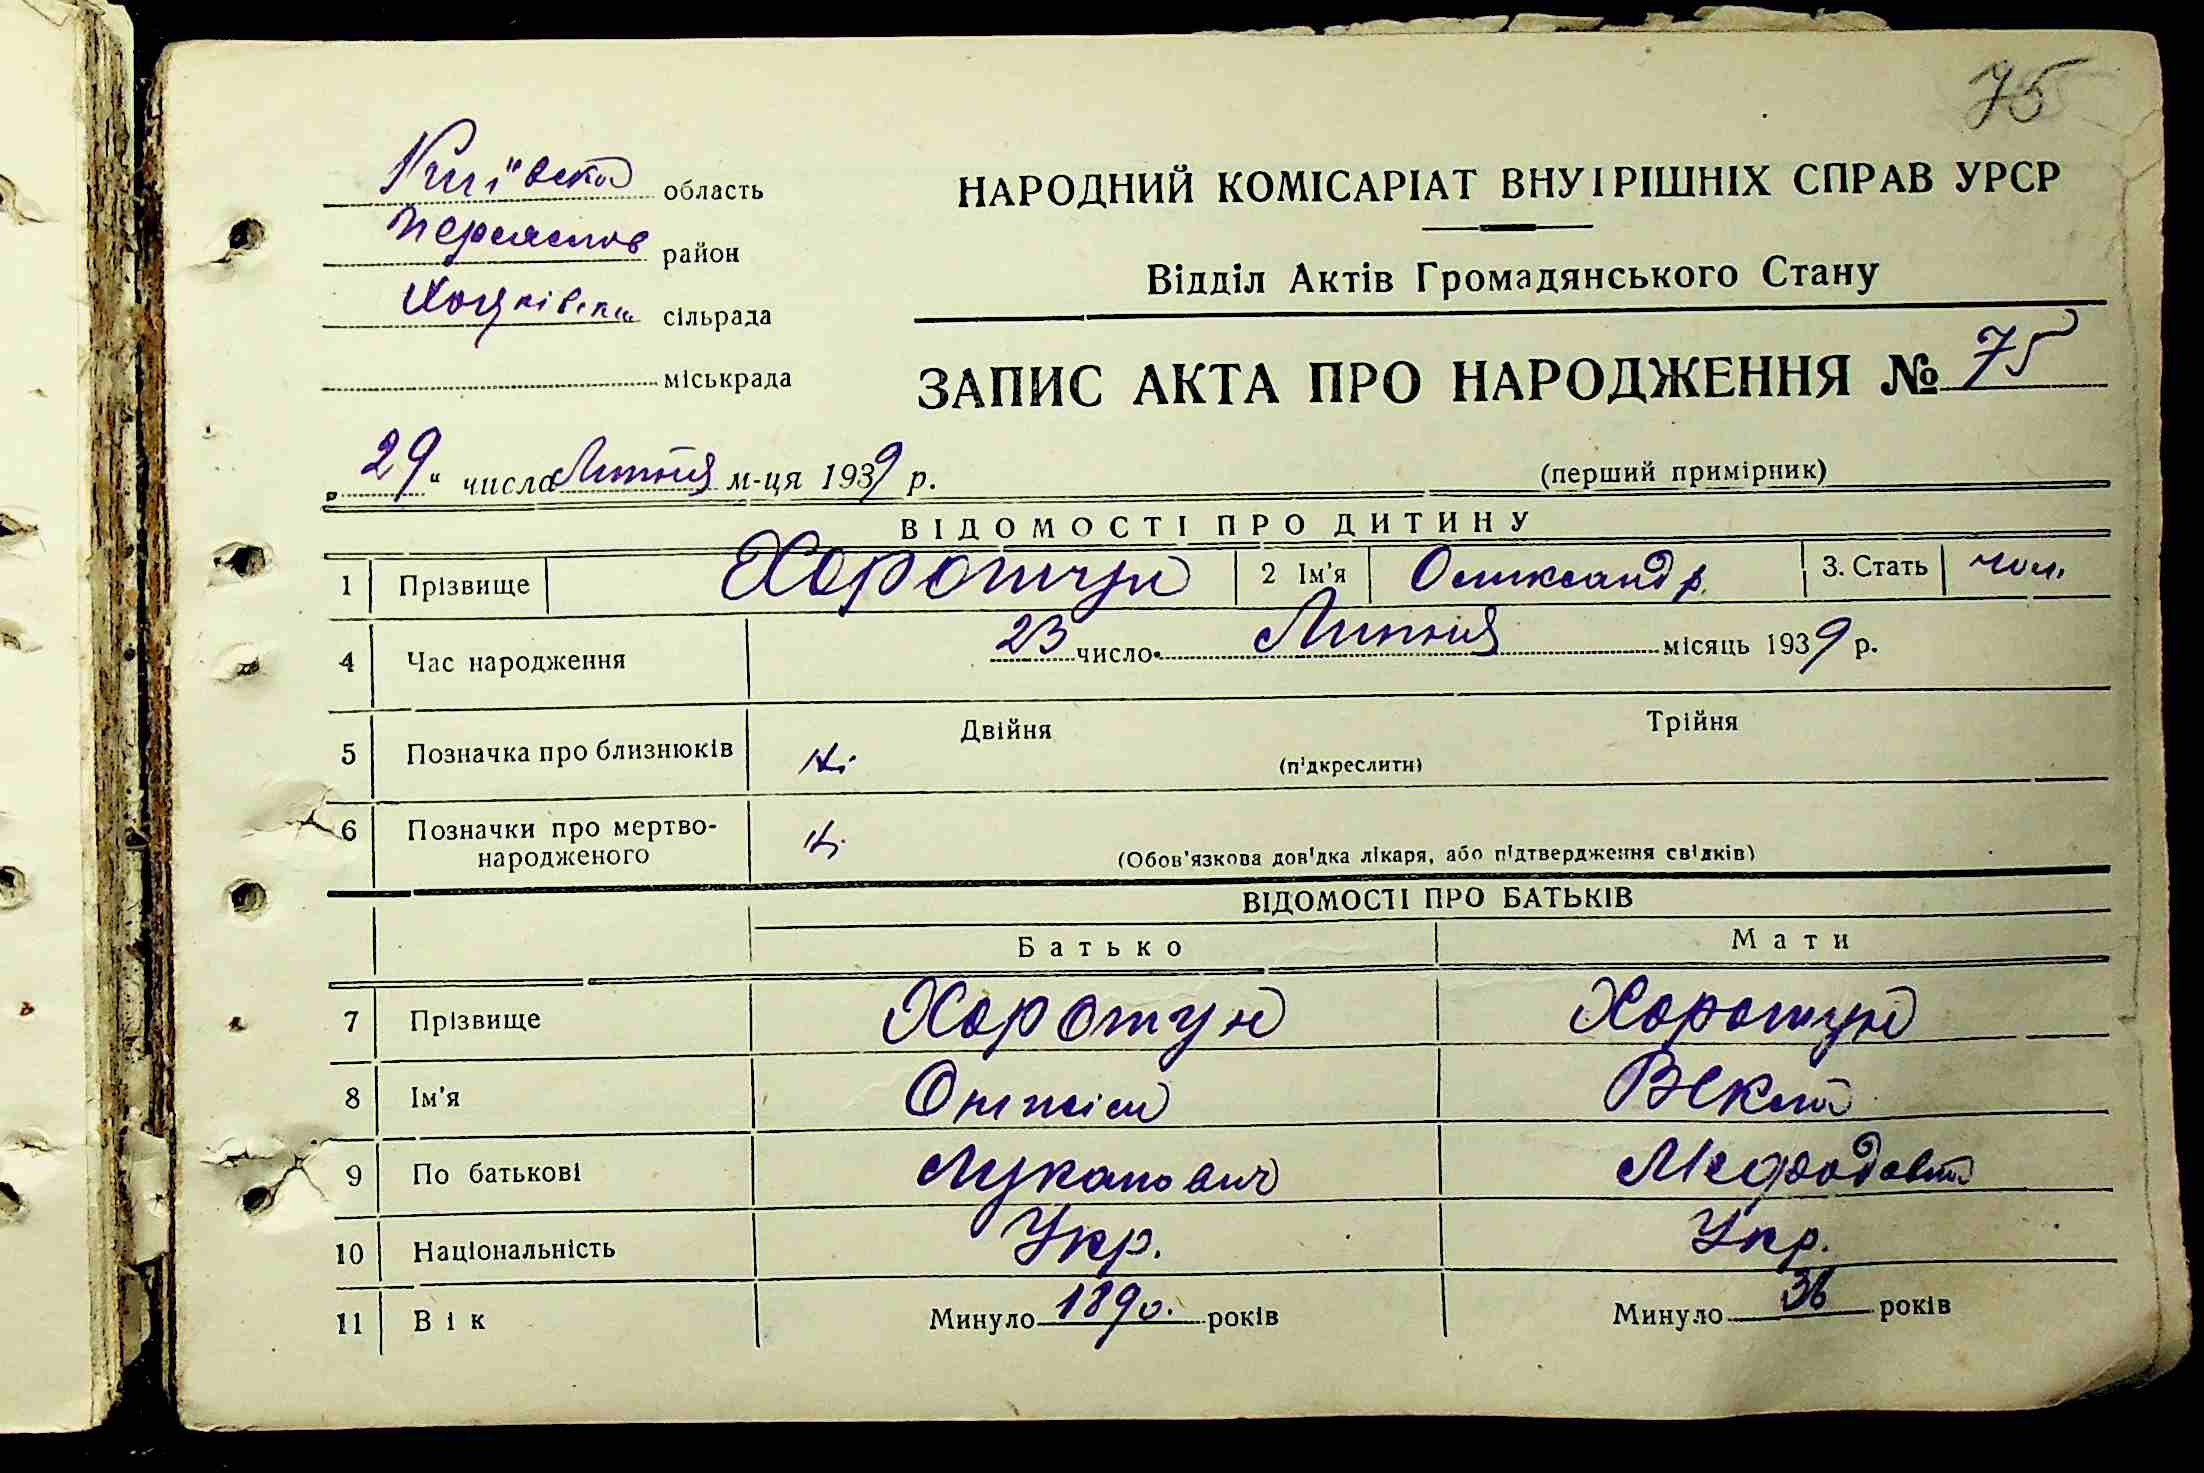 75
Київська область
НАРОДНИЙ КОМІСАРІАТ ВНУТРІШНІХ СПРАВ УРСР
Переяслов район
Відділ Актів Громадянського Стану
Хоцківська сільрада
міськрада
ЗАПИС АКТА ПРО НАРОДЖЕННЯ № 75
„29“ числа Липня м-ця 1939 р.
(перший примірник)
ВІДОМОСТІ ПРО ДИТИНУ
1 Прізвище Хоротун 2 Ім'я Олександр 3. Стать чол.
4 Час народження 23 число Липня місяць 1939 р.
5 Позначка про близнюків ні Двійня Трійня
(підкреслити)
6 Позначки про мертво-
народженого ні
(Обов'язкова довідка лікаря, або підтвердження свідків)
ВІДОМОСТІ ПРО БАТЬКІВ
Батько Мати
7 Прізвище Хоротун Хоротун
8 Ім'я Текля
9 По батькові Лукапович
10 Національність Укр. Укр.
11 Вік Минуло 1890. років Минуло 36 років